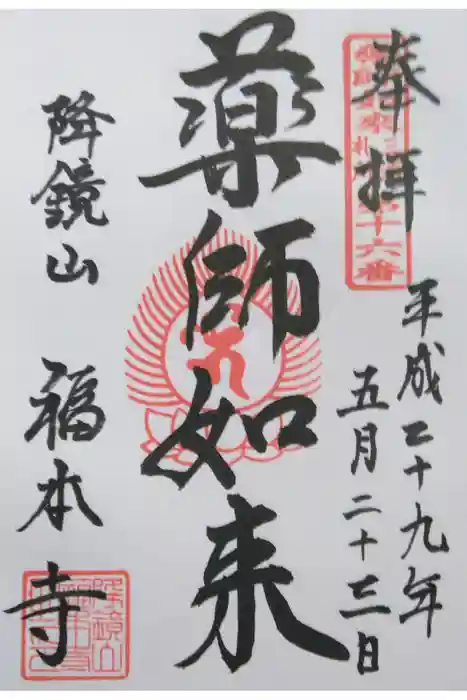 奉拝
平成二十九年
五月二十三日
薬師如来
降鏡山 福本寺
第十六番